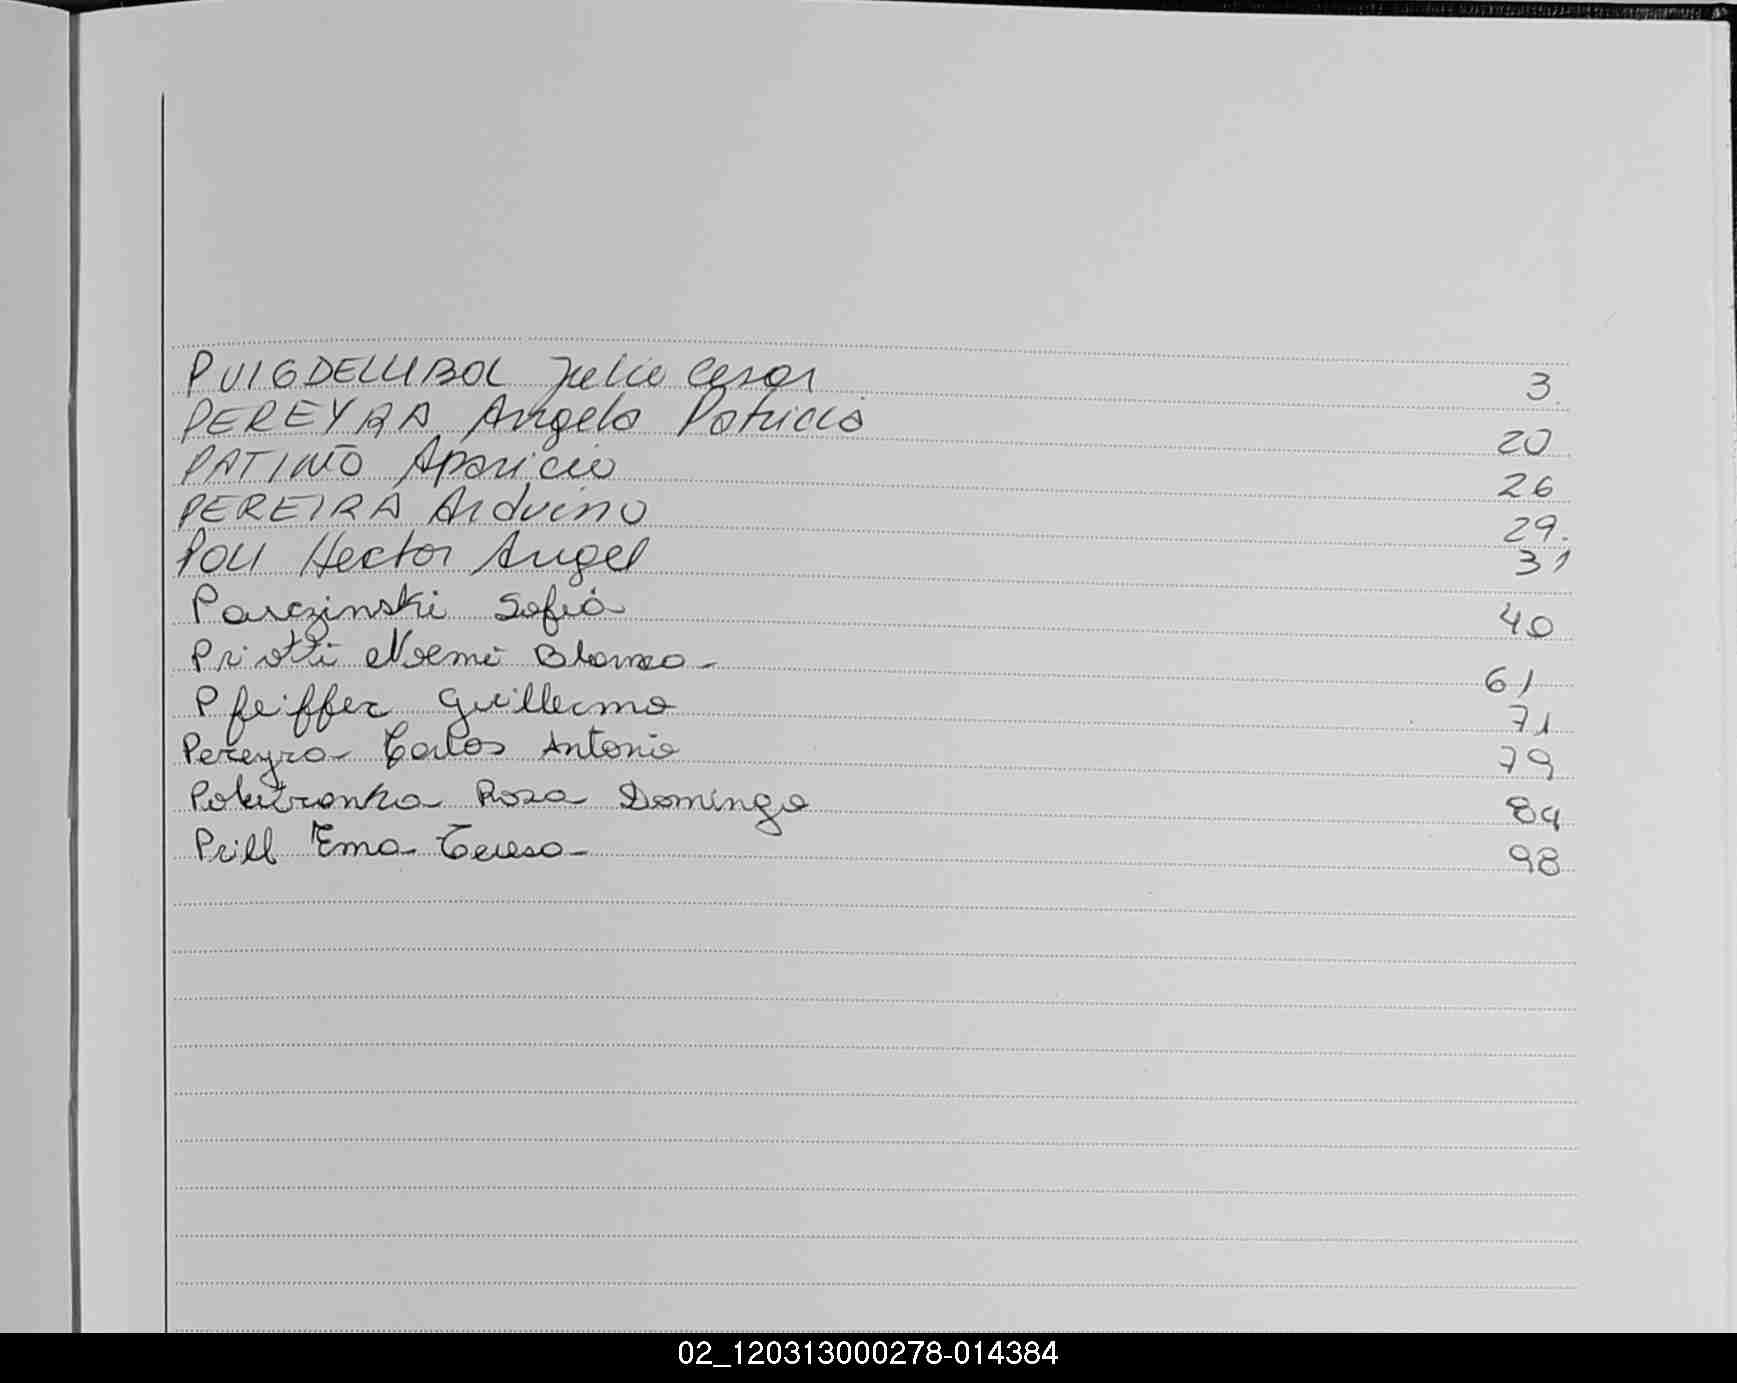 PUIGDELLIBOL Julio Cesar 3.
PEREYRA Angela Patricia 20
PATIÑO Aparicio 26
PEREIRA Arduino 29.
POLI Hector Angel 31
Parczinski Sofia 40
Priotti Noemi Blanca - 61
Pfeiffer Guillermo 71
Pereyra Carlos Antonio 79
Rosa Dominga
Prill Ema Teresa - 98
02_120313000278-014384